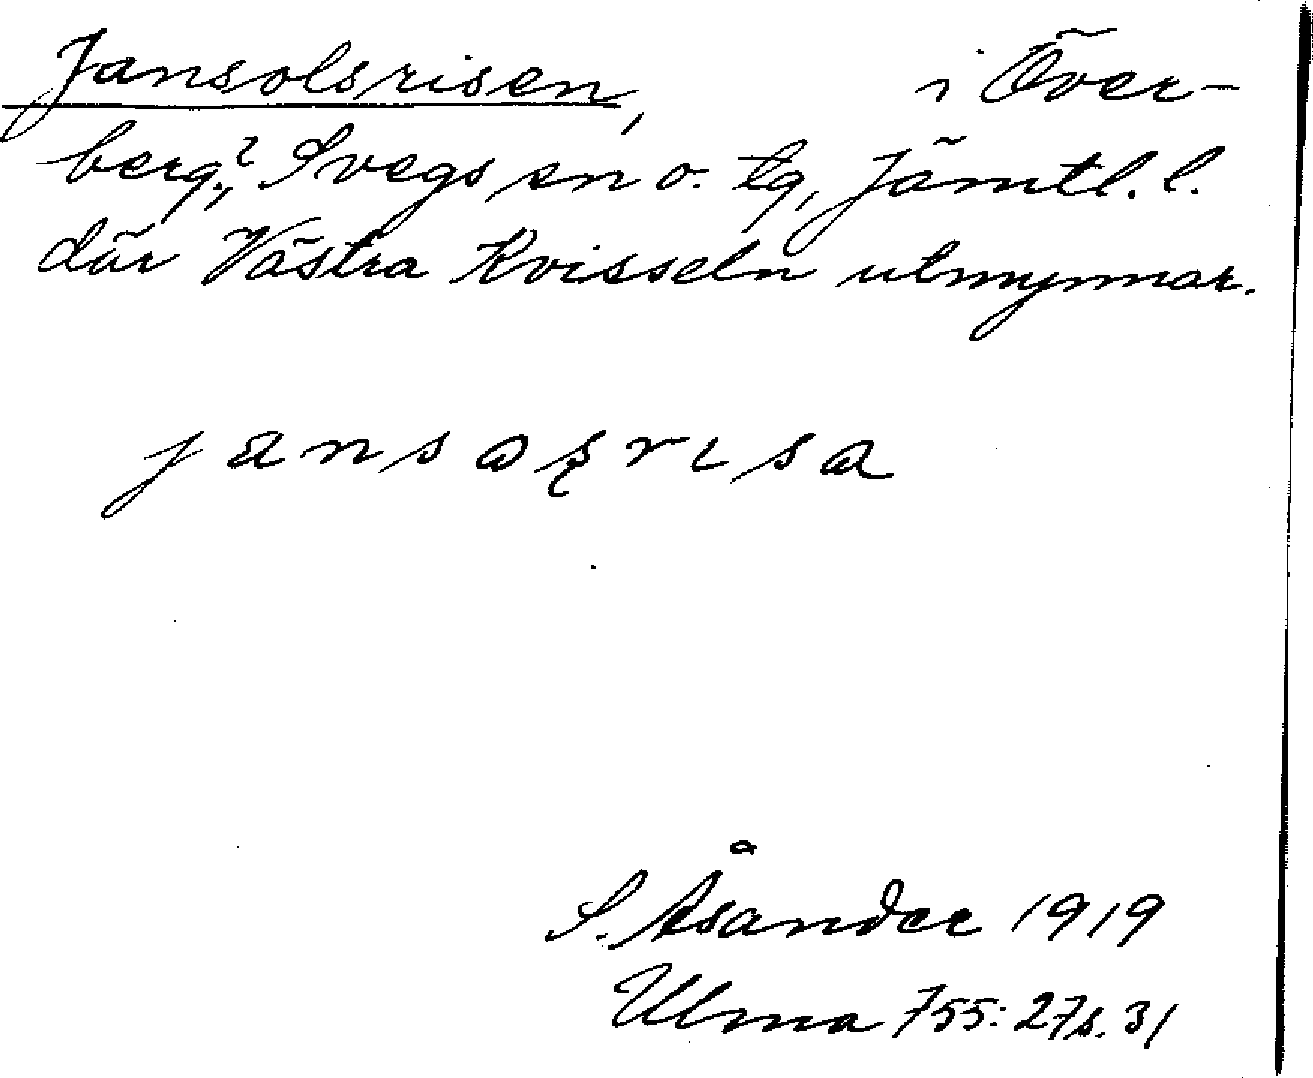 Jansolsrisen, i Över-
berg,? Svegs sn o. tg, Jämtl. l.
där Västra Kvisseln utmynnar.
jansosrisa
S. Åsander 1919
Ulma 755:27 s. 31